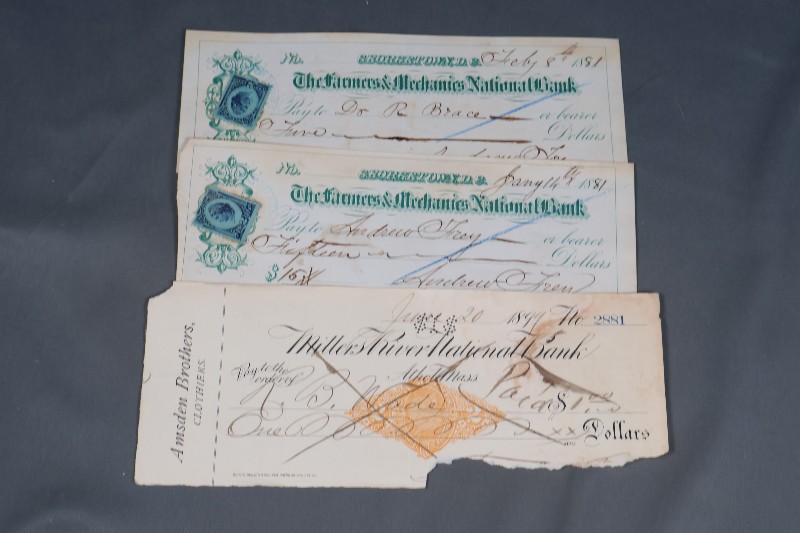 No. GEORGETOWN, D. C. Feby 8th 1881
The Farmers & Mechanics National Bank
Pay to Dr R Brace or bearer
Five Dollars
No. GEORGETOWN, D. C. Jany 14th 1881
The Farmers & Mechanics National Bank
Pay to Andrew Frey or bearer
Fifteen Dollars
$15 Andrew Frey
June 20 1899 No. 2881
$1$
Millers River National Bank
Athol Mass
Pay to the order of B. Paid $1.00
One Dollars
Amsden Brothers,
CLOTHIERS.